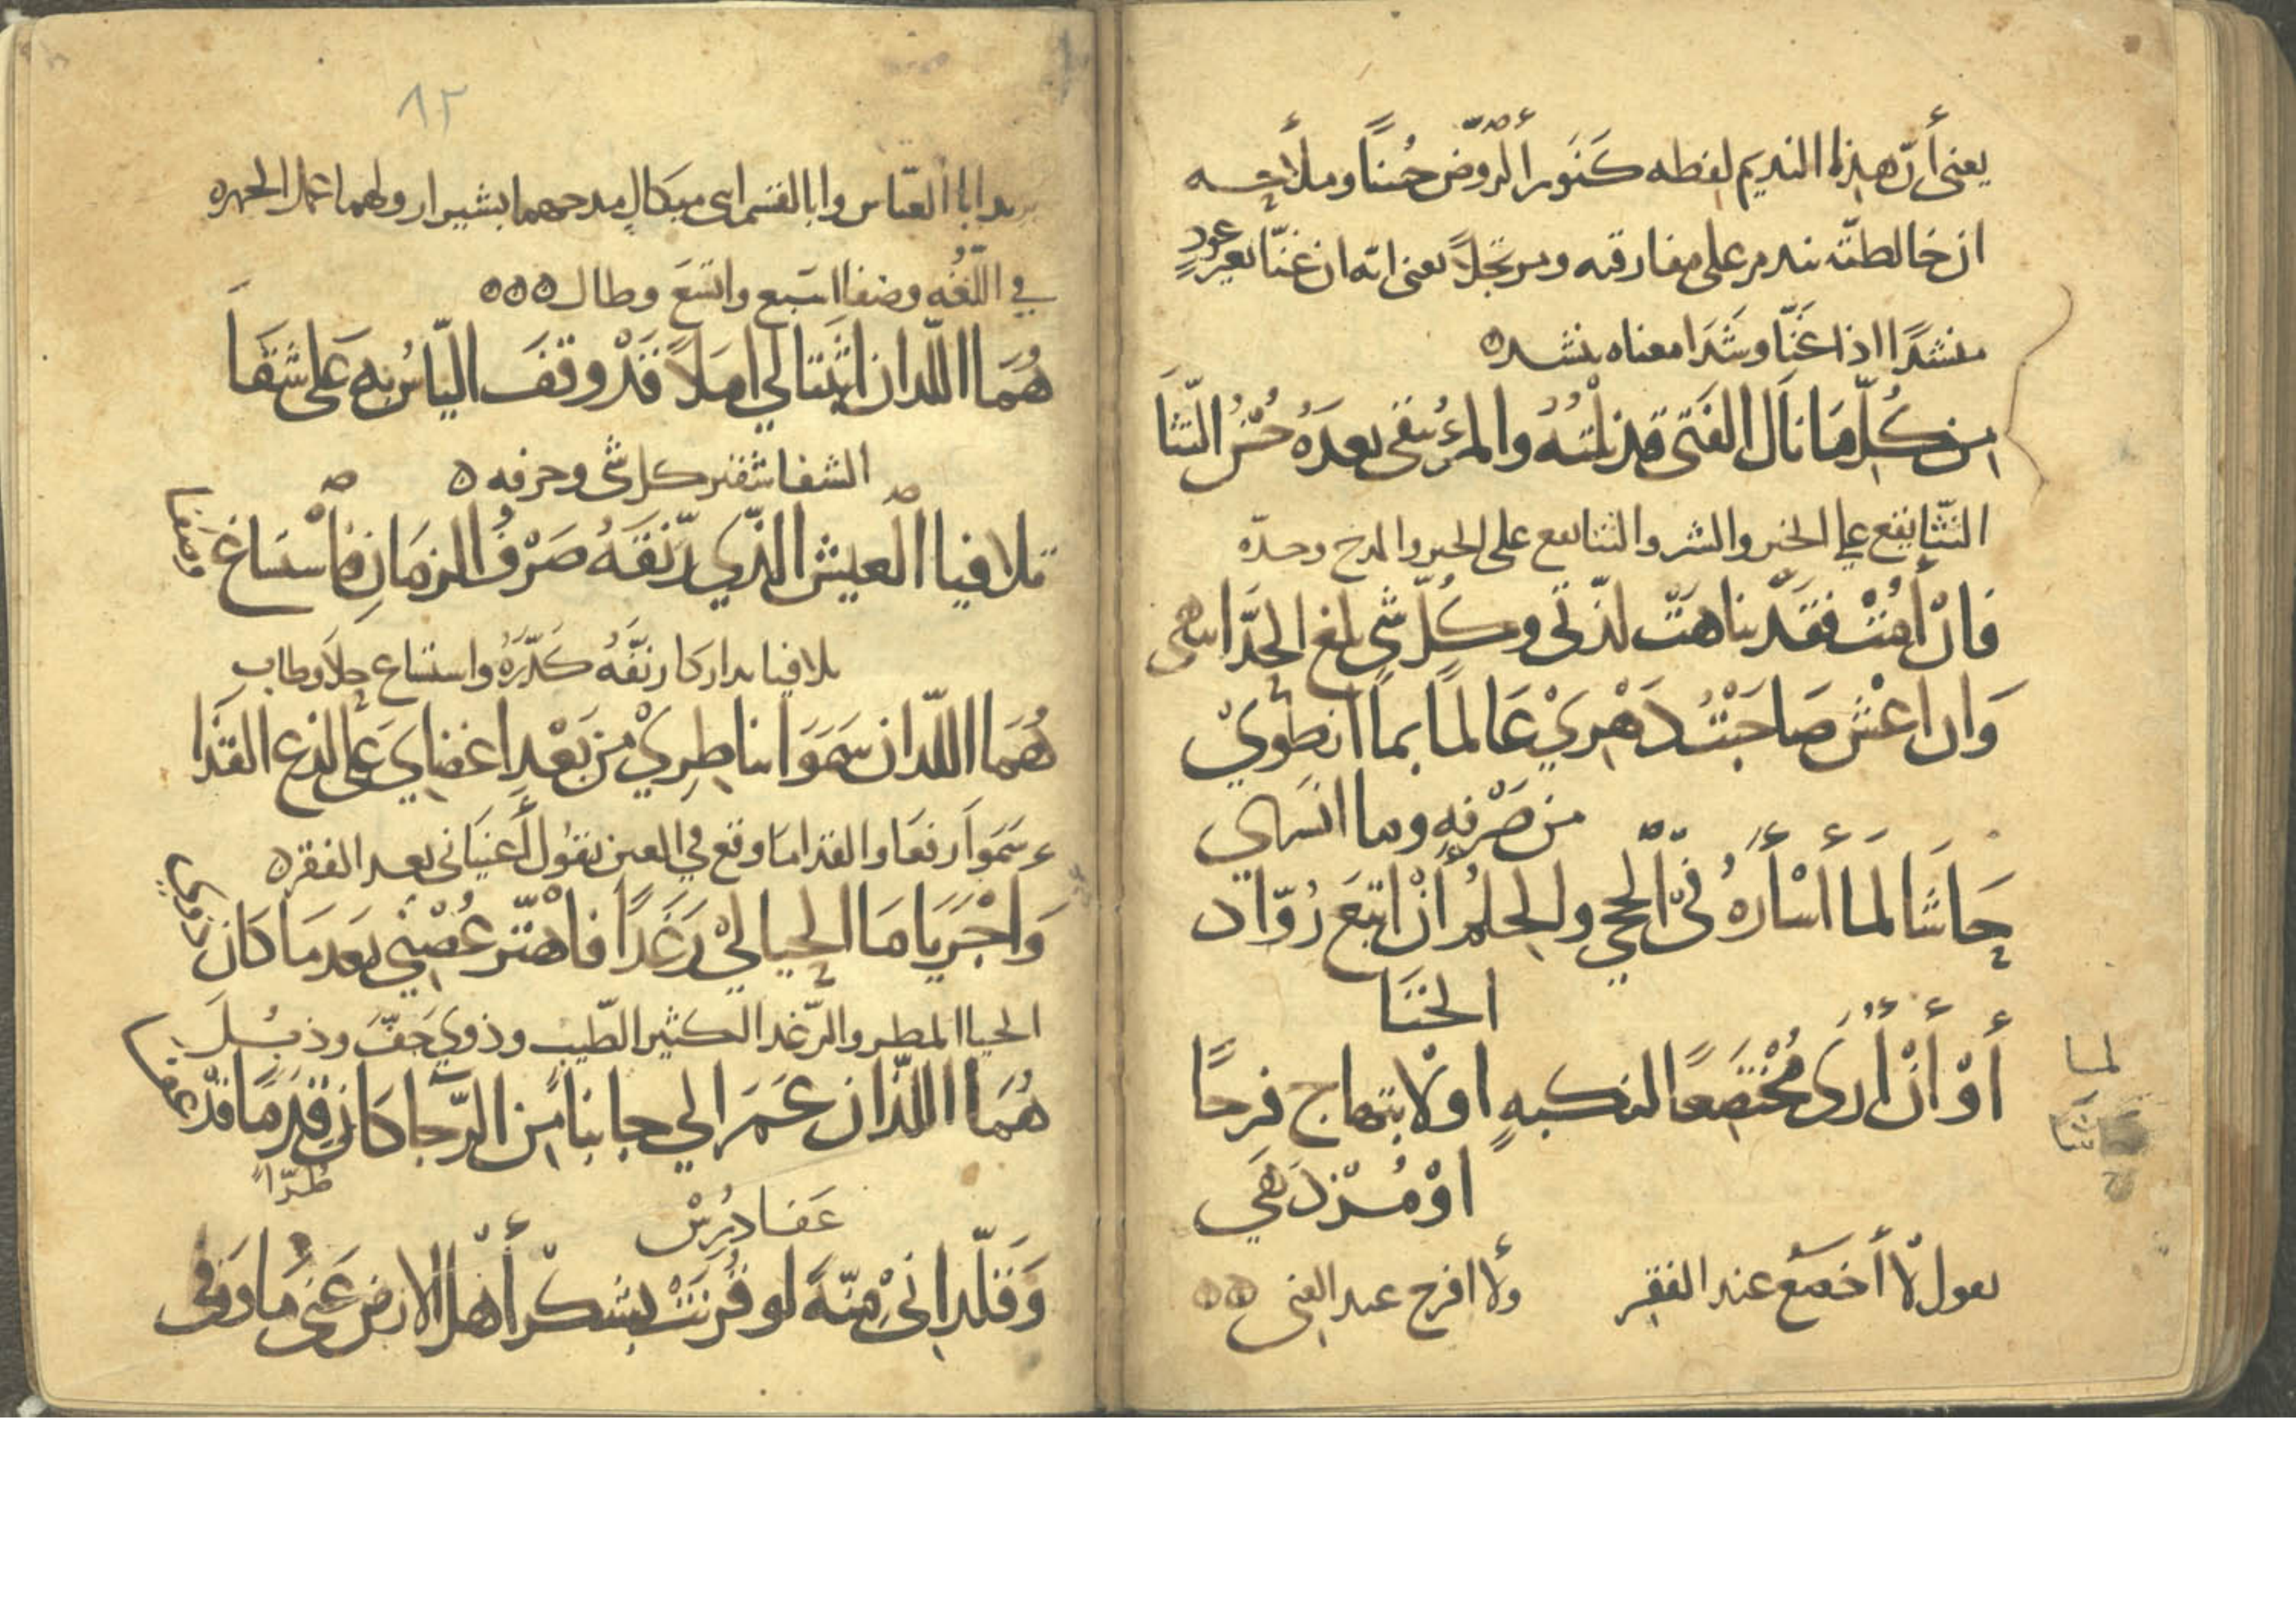 يعنى أنّ هذا النديم لفظه كَنَوْر الرّوض حُسنًا وملاحه
ان خالطته ندم على مفارقته ومرتجلًا يعنى انه ان غنّا بغير عودٍ
منشدًا اذا غنّا وشَدَا معناه ينشد
من كُلّ مَا نَال الفَتى قد نلْتُهُ والمرءُ يبقى بعدَهُ حُسْنُ النّثا
النّثا يقع على الخير والشر والثنا يقع على الخير والمدح وحدّه
فانْ أمُتْ فقَد تناهَتْ لذّتى وكُلّ شى بلغ الحدّ انتهى
وَان اعشْ صَاحَبْتُ دَهْرِيْ عَالمًا بما انطوَيْ
من صَرْفِهِ وما انسَرَي
حَاشَا لما أسْأره فيّ الحجي والحلمُ أنْ اتبَع رُوّاد
الخَنَا
أوْ أنْ أُرىَ مُخْتضعًا لنكبهٍ اوْ لابتهاج فرحًا
اوْ مُزْدَهَي
لما
يقول لا أخضع عند الفقر ولا افرح عند الغنى
ابا العبّاس وابا القسم ابنى ميكال مدحهما بشيراز ولهما عمل الجمهره
في اللّغه وضفا اسبع واتسَعَ وطال
هُمَا اللّذان اثبَتَا لي امَلاً قَدْ وقفَ اليّاسُ بهِ عَلى شَفَا
الشفا شفير كل شى وحرفه
تلافيا العيش الذّي رَنّقَهُ صَرْفُ الزمَانِ فاسْتسَاغ وصَفا
تلافيا تداركا رنّقَهُ كَدّرَهُ واستساغ حلاَ وطاب
هُمَا اللّذان سَمَوَا بناظِريْ من بَعْدِ اغضايَ عَلى لذع القذَا
سَمَوَا رفعَا والقذا ما وقع في العين يقول أغنيَانى بعد الفقر
وَاجْرَيَا مَا الحيا ليْ رَغَدًا فاهْتزّ غُصْني بعد مَا كَان ذوي
الحيا المطر والرّغد الكثير الطّيب وذوي جَفّ وذبُلَ
هُمَا اللّذان عَمَرا لي جانبًا من الرّجا كَان قِدْمًا قدْ عفا
طُرّاً
عَفا دُرِسْ
وَقلّدانىْ مِنّةً لو قُرنَتْ بشكر أهل الارض عَنىْ مَا وَفى